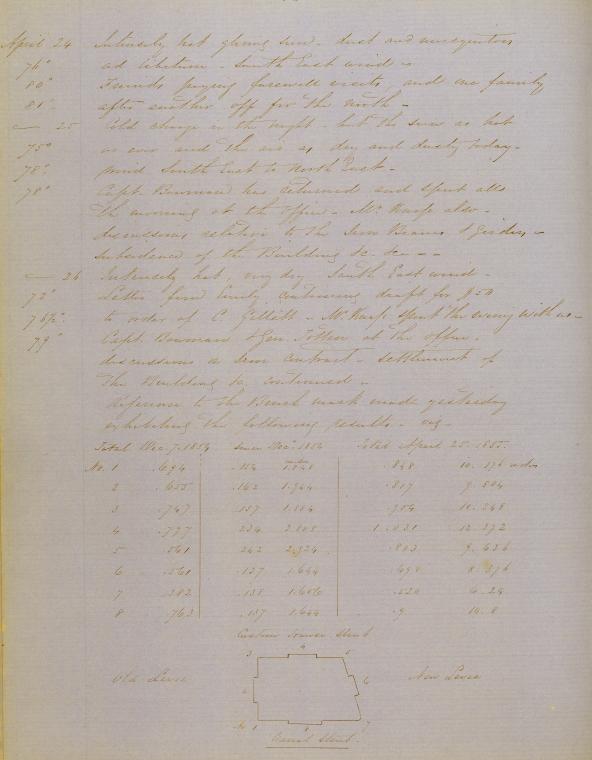 April 24 Intensely hot glaring sun - dust and musquitoes
76° ad libitum - South East wind -
80° Friends paying farewell visits, and one family
81° after another off for the north -
— 25 Cold change in the night - but the sun as hot
75° as ever and the air as dry and dusty today -
78° wind South East to North East -
78° Capt. Bowman has returned and spent all
the morning at the office - Mr. also -
discussions relative to the Iron Beams, & Girders, -
Subsidence of the Building &c. &c. - -
— 26 Intensely hot, very dry South East wind -
72° Letter from Emily containing draft for $50
78½° to order of C. Gillett - Mr. spent the evening with us -
79° Capt. Bowman & Gen. Totten at the office -
discussions on Iron contract - settlement of
the Building &c. continued -
Reference to the Bench mark made yesterday
exhibiting the following results - viz -
Total Dec. 7. 1854 since Dec. 1854 Total April 25. 1855.
No. 1 .694 .154 1.848 .848 10.176
2 .655 .162 1.944 .817 9.804
3 .797 .157 1.884 .954 11.448
4 .797 .234 2.808 1.031 12.372
5 .561 .242 2.904 .803 9.636
6 .561 .137 1.644 .698 8.376
7 .382 .138 1.656 .520 6.24
8 .763 .137 1.644 .9 10.8
Custom House Street
3 4 5
Old Levee New Levee
6
No 1 7
Canal Street.